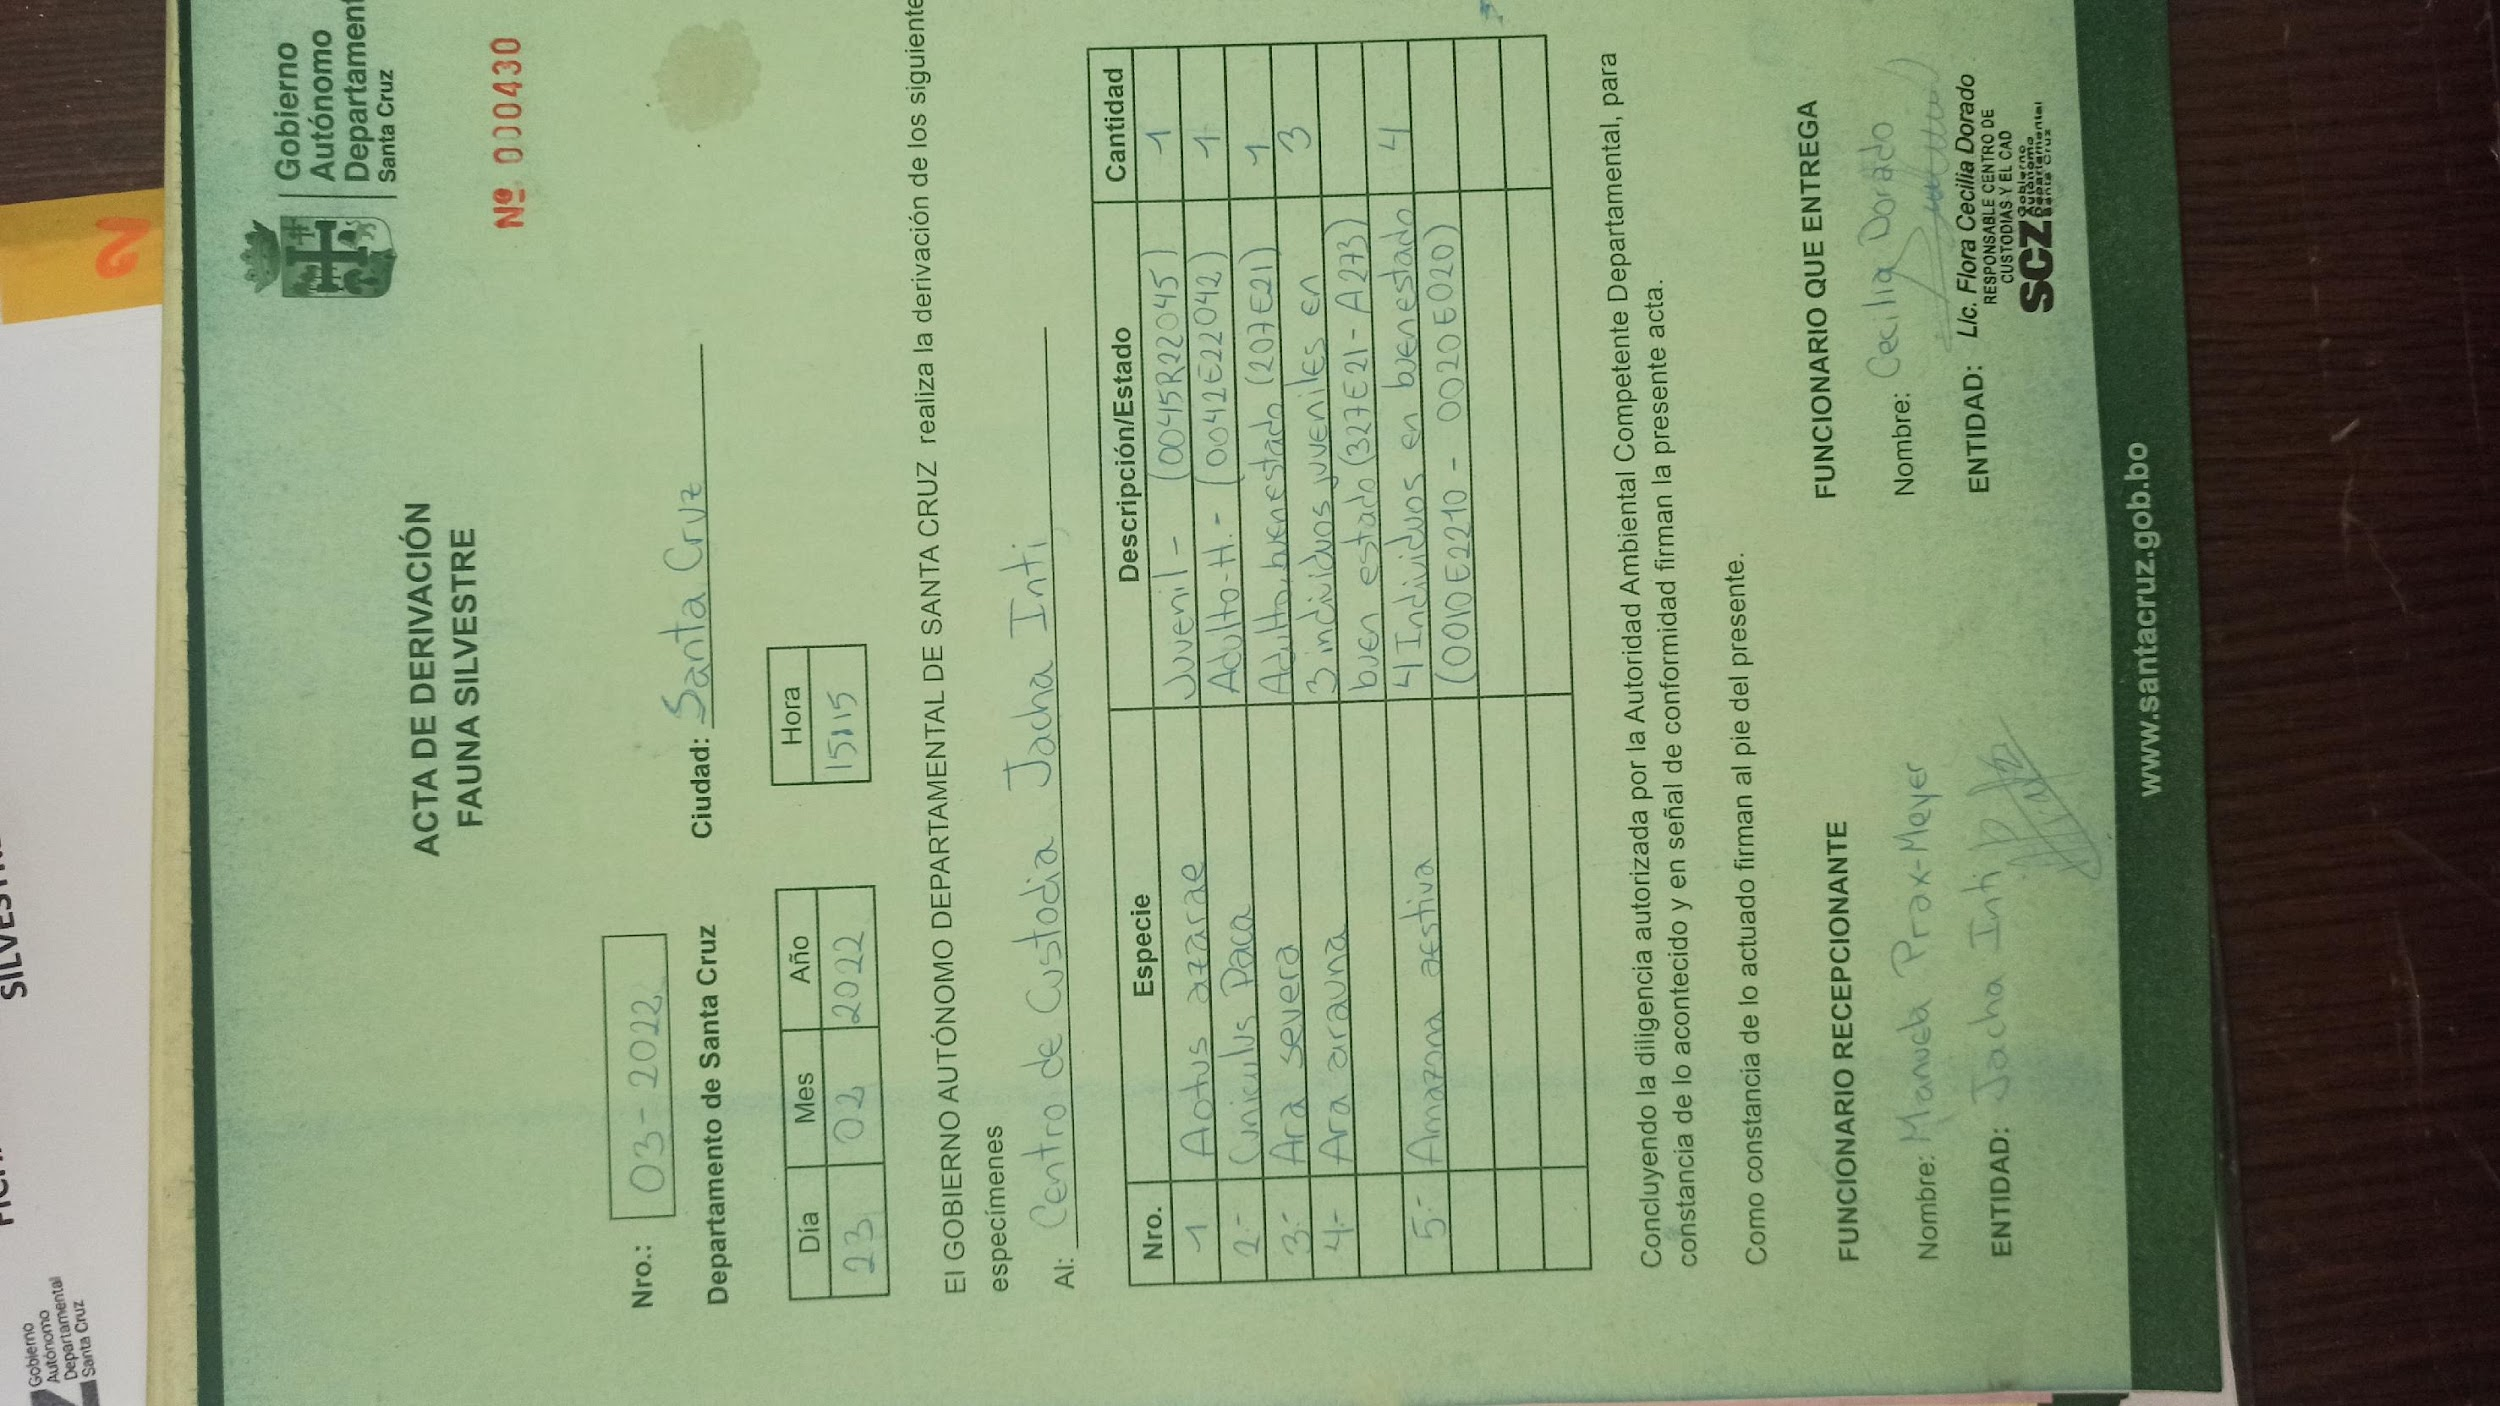 Gobierno
Autónomo
Departamen
Santa Cruz
Nº 000430
ACTA DE DERIVACIÓN
FAUNA SILVESTRE
Nro.: 03-2022
Departamento de Santa Cruz Ciudad: Santa Cruz
Día Mes Año Hora
23 02 2022 15:15
El GOBIERNO AUTÓNOMO DEPARTAMENTAL DE SANTA CRUZ realiza la derivación de los siguiente
especímenes
Al: Centro de Custodia Jacha Inti
Nro. Especie Descripción/Estado Cantidad
1 Aotus azarae Juvenil - (0045R22045) 1
2.- Cuniculus Paca Adulto-H.- (0042E22042) 1
3.- Ara severa Adulto, buen estado (207E21) 1
4.- Ara arauna 3 individuos juveniles en 3
buen estado (327E21 - A273)
5.- Amazona aestiva 4 Individuos en buen estado 4
(0010E2210 - 0020E020)
Concluyendo la diligencia autorizada por la Autoridad Ambiental Competente Departamental, para
constancia de lo acontecido y en señal de conformidad firman la presente acta.
Como constancia de lo actuado firman al pie del presente.
FUNCIONARIO RECEPCIONANTE FUNCIONARIO QUE ENTREGA
Nombre: Manuela Prax-Meyer Nombre: Cecilia Dorado
ENTIDAD: Jacha Inti ENTIDAD: Lic. Flora Cecilia Dorado
RESPONSABLE CENTRO DE
CUSTODIAS Y EL CAD
SCZ Gobierno
Autónomo
Departamental
Santa Cruz
www.santacruz.gob.bo
2
Gobierno
Autónomo
Departamental
Santa Cruz